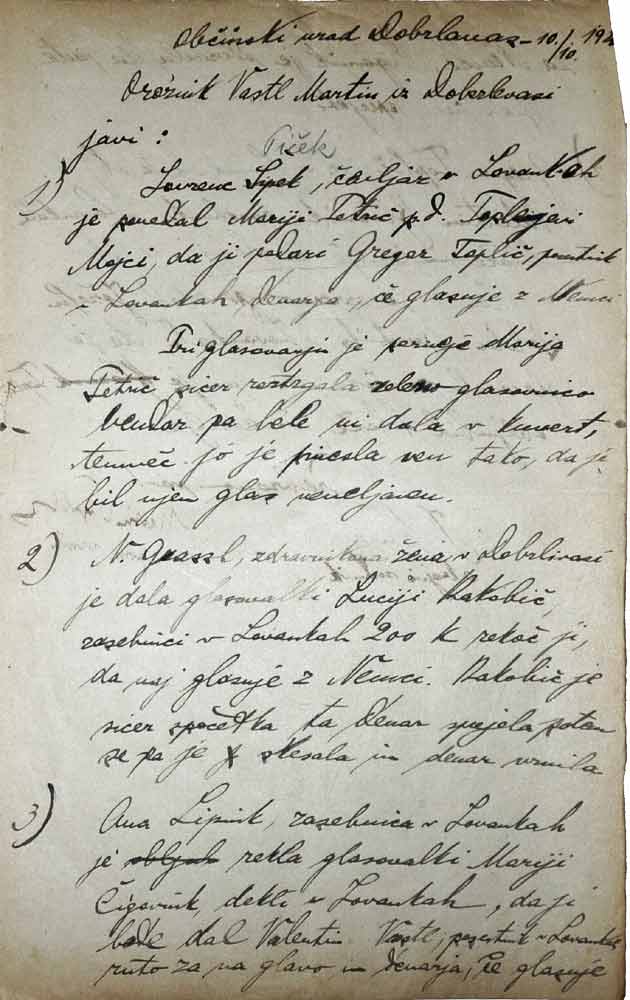 Občinski urad Dobrlavas - 10./10. 19
Orožnik Vastl Martin iz Dobrlevasi
javi :
Piček
1) Lovrenc Sipek, čevljar v Lovankah
je povedal Mariji Tetrič p.d. Toplnjari
Mojci, da ji podari Gregor Toplič, posestnik
v Lovankah denarja, če glasuje z Nemci
Pri glasovanju je seruje Marija
Tetrič sicer raztrgala zeleno glasovnico
vendar pa bele ni dala v kuvert,
temveč jo je prinesla ven tako, da je
bil njen glas neveljaven.
2) N. Grassl, zdravnikova žena v Dobrlivasi
je dala glasovalki Luciji Rakobič,
zasebnici v Lovankah 200 K rekoč ji,
da naj glasuje z Nemci. Rakobič je
sicer spočetka ta denar sprejela potem
se pa je skesala in denar vrnila
3) Ana Lipnik, zasebnica v Lovankah
je obljub rekla glasovalki Mariji
Čigovnik, dekli v Lovankah, da ji
bode dal Valentin Vastl, posestnik v Lovankah
ruto za na glavo in denarja, če glasuje